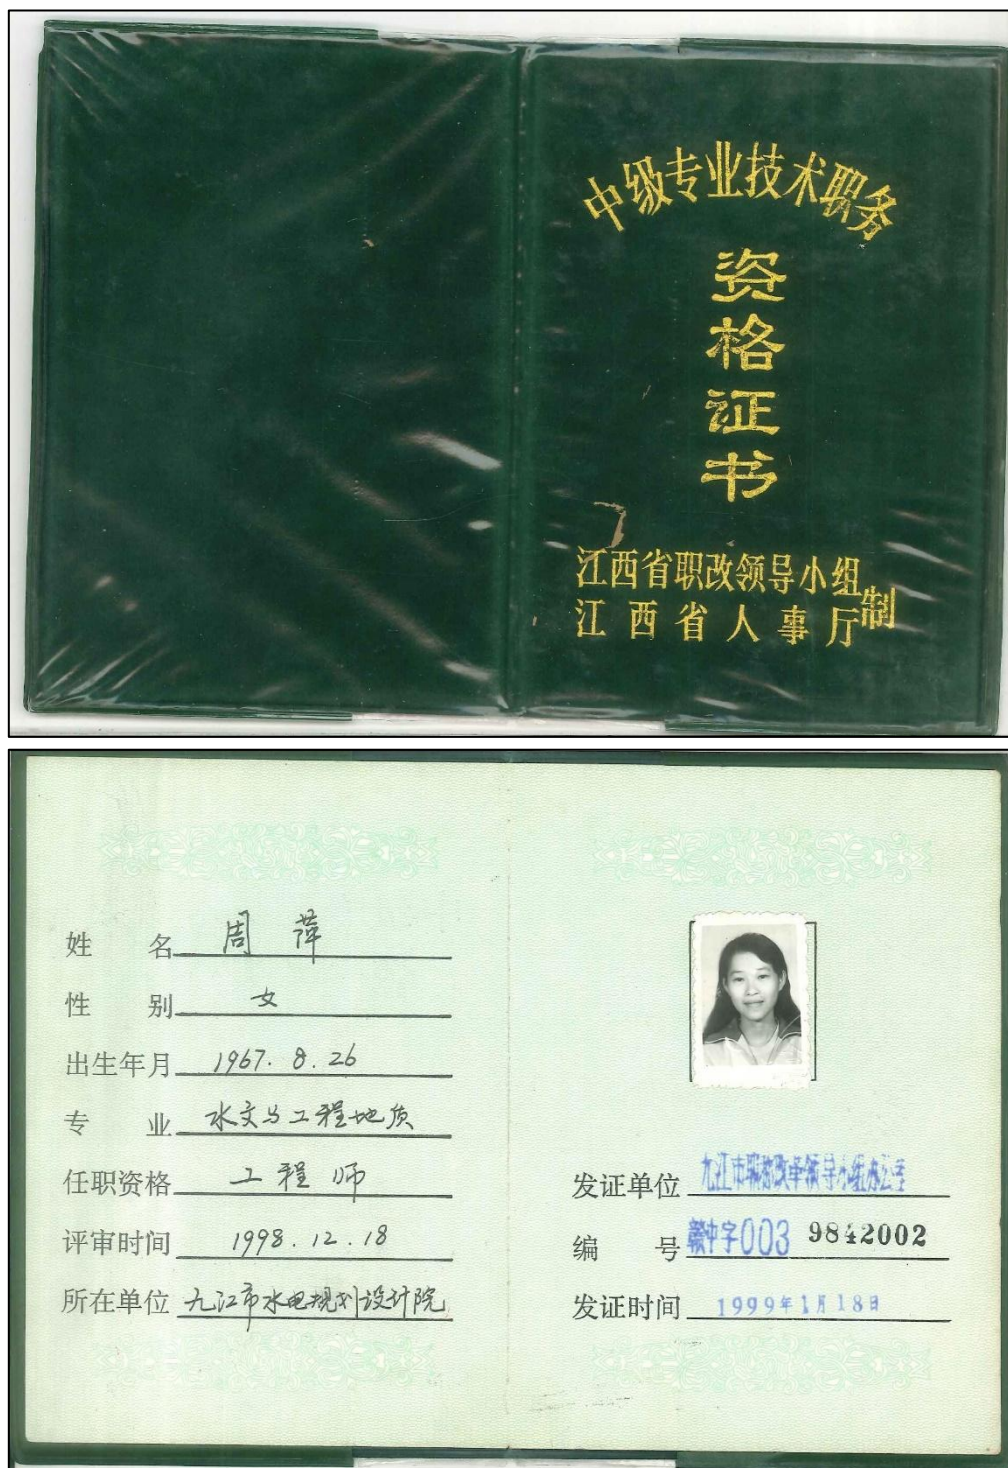 中级专业技术职务
资格证书
江西省职改领导小组
江西省人事厅制
姓名 周萍
性别 女
出生年月 1967.8.26
专业 水文与工程地质
任职资格 工程师
评审时间 1998.12.18
所在单位 九江市水电规划设计院
发证单位 九江市职称改革领导小组办公室
编号 赣中字003 9842002
发证时间 1999年1月18日